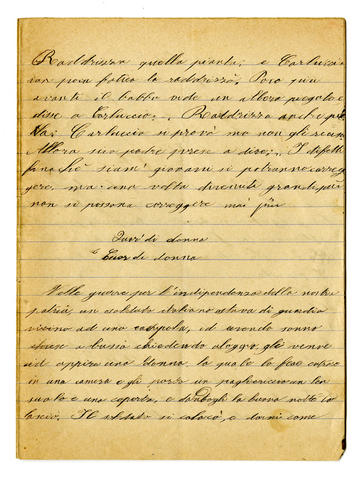 Raddrizza quella pianta; e Carluccio
con poca fatica la raddrizzò; Poco più
avanti il babbo vide un albero piegato e
disse a Carluccio; Raddrizza anche
Carluccio si provò ma non gli
Allora suo padre prese a dire; I difetti
finchè siam' giovani si potranno correg
gere, ma una volta divenuti grandi
non si possono correggere mai più

di donna
Cuor di donna

Nella guerra per l'indipendenza della nostra
patria, un soldato italiano stava di guardia
vicino ad una casipola, ed avendo sonno
e bussò chiedendo alloggio, gli venne
ad apprire una donna, la quale lo fece entrare
in una camera e gli portò un pagliericcio un len
zuolo e una coperta, e dandogli la buona notte lo
lasciò. Il soldato si coricò, e dormì come